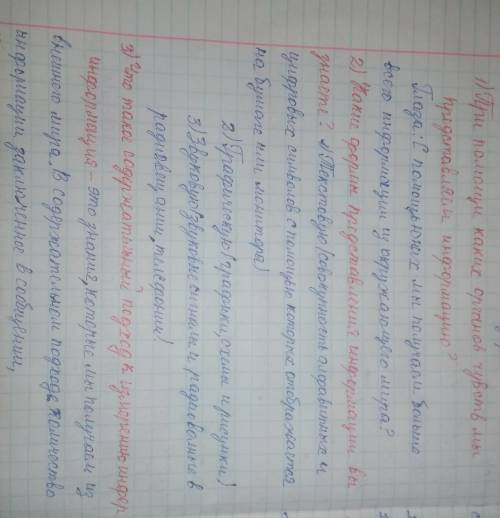 1) При помощи каких органов чувств мы
представляем информацию?
Глаза: С помощью них мы получаем больше
всего информации и окружающего мира?
2) Какие формы представления информации вы
знаете? 1) Текстовую (совокупность алфавитных и
цифровых символов с помощью которых отображается
на бумаге или монитора)
2) Графическую (графики, схемы и рисунки)
3) Звуковую (звуковые сигналы и радиоволны в
радиовещании, телефония)
3) Что такое содержательный подход к измерению инфор.
информация - это знания, которые мы получаем из
внешнего мира. В содержательном подходе количество
информации заключенное в сообщении,